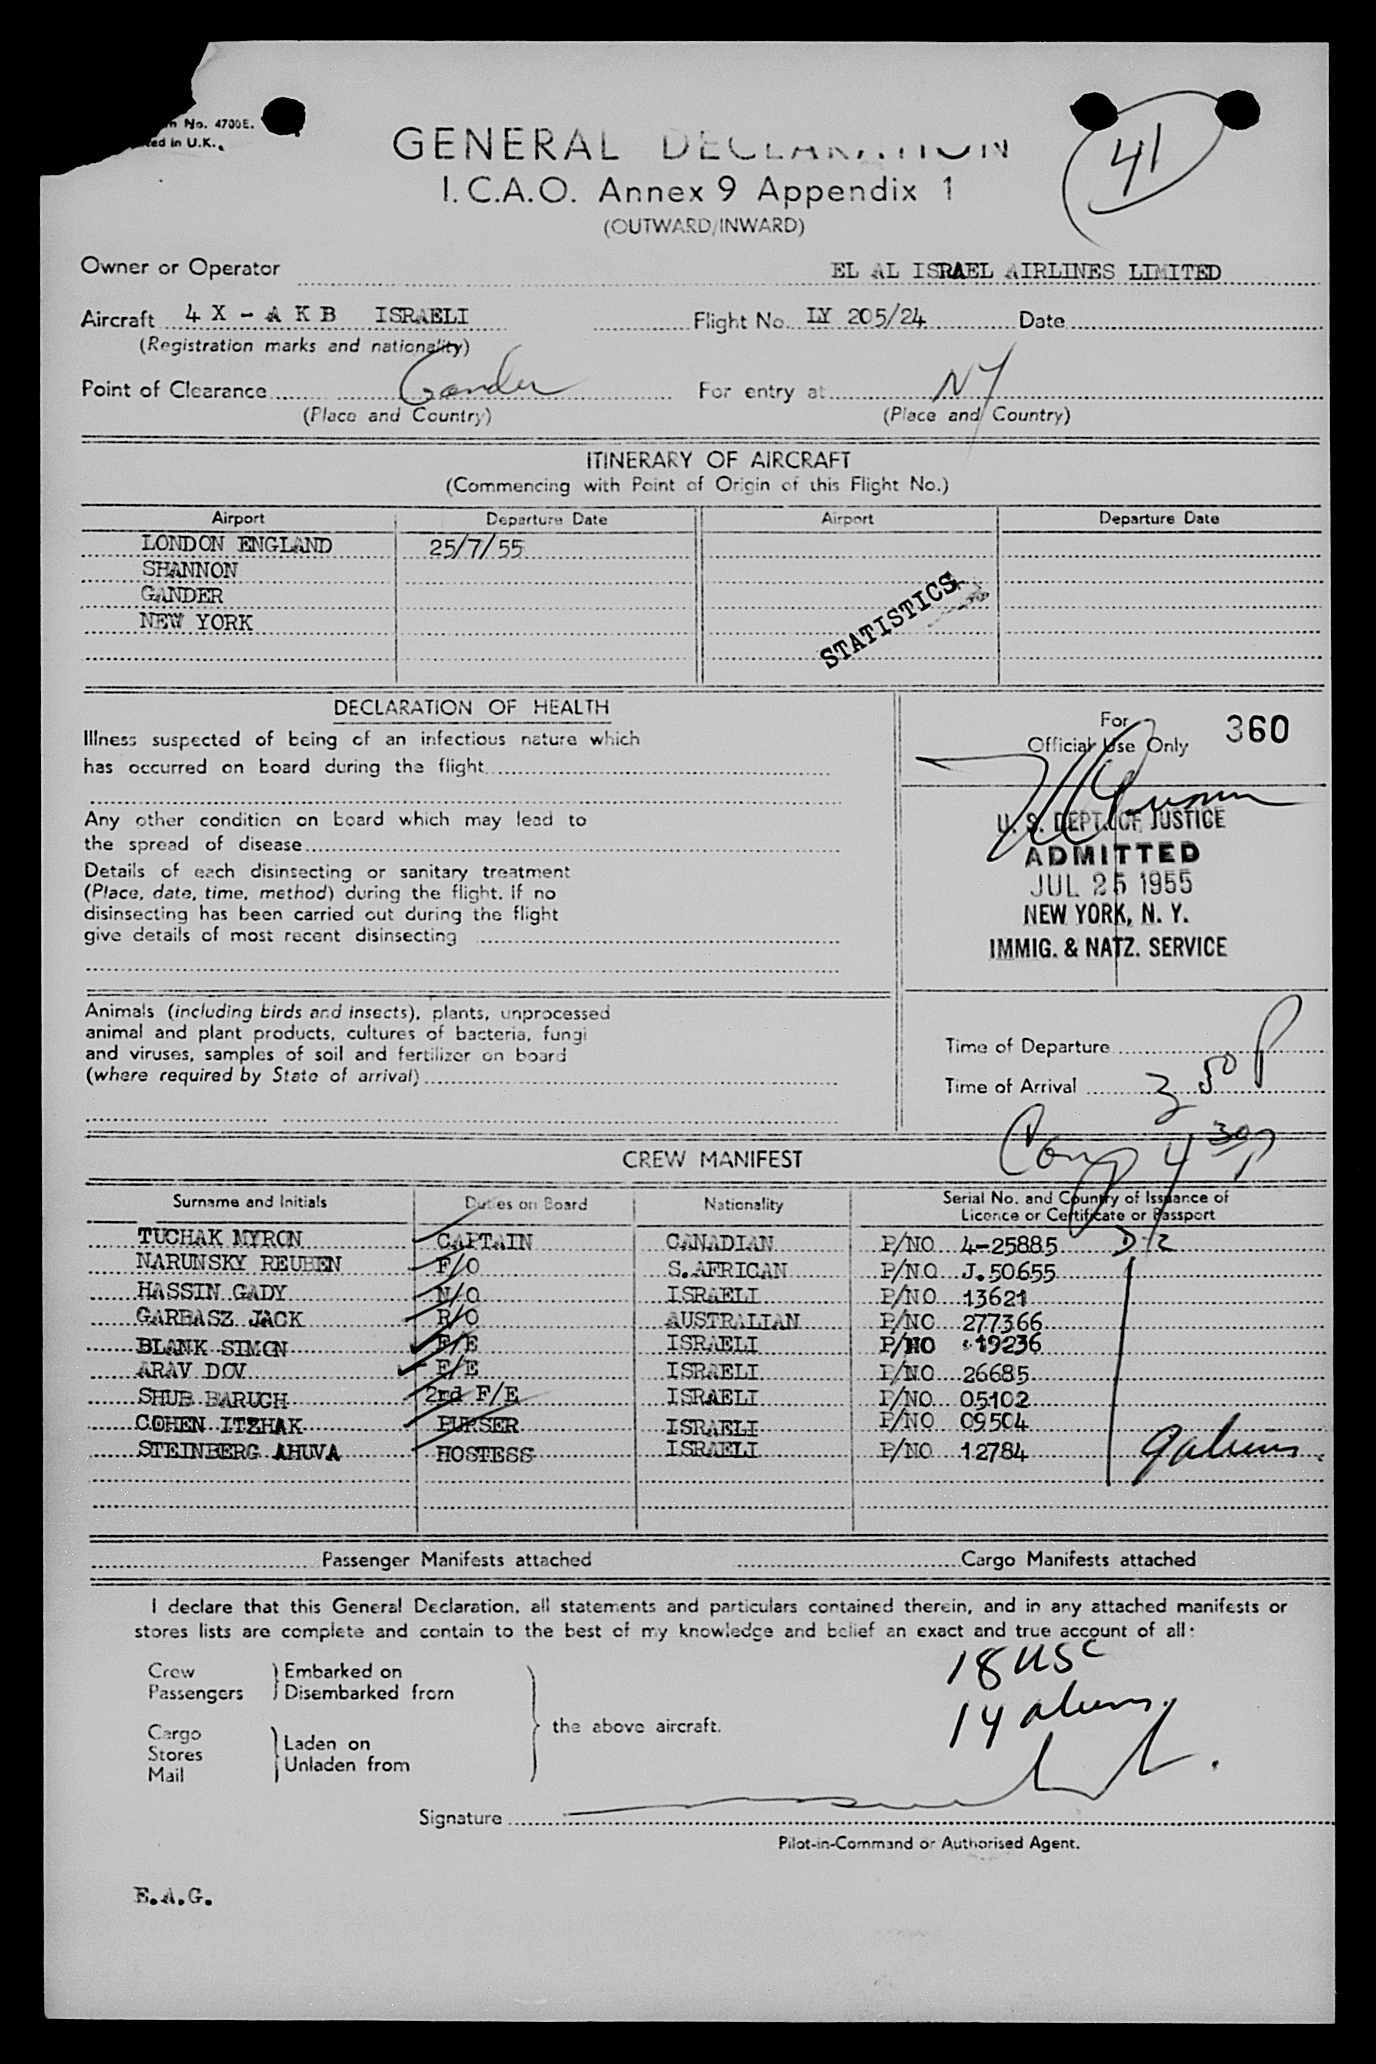 No. 4700E.
in U.K.
41
GENERAL DECLARATION
I.C.A.O. Annex 9 Appendix 1
(OUTWARD/INWARD)
Owner or Operator EL AL ISRAEL AIRLINES LIMITED
Aircraft 4 X - A K B ISRAELI Flight No. LY 205/24 Date
(Registration marks and nationality)
Point of Clearance Gander For entry at NY
(Place and Country) (Place and Country)
ITINERARY OF AIRCRAFT
(Commencing with Point of Origin of this Flight No.)
Airport Departure Date Airport Departure Date
LONDON ENGLAND 25/7/55
SHANNON
GANDER
NEW YORK
STATISTICS
DECLARATION OF HEALTH
Illness suspected of being of an infectious nature which
has occurred on board during the flight
Any other condition on board which may lead to
the spread of disease
Details of each disinsecting or sanitary treatment
(Place, date, time, method) during the flight. If no
disinsecting has been carried out during the flight
give details of most recent disinsecting
For
Official Use Only
360
U. S. DEPT. OF JUSTICE
ADMITTED
JUL 25 1955
NEW YORK, N. Y.
IMMIG. & NATZ. SERVICE
Animals (including birds and insects), plants, unprocessed
animal and plant products, cultures of bacteria, fungi
and viruses, samples of soil and fertilizer on board
(where required by State of arrival)
Time of Departure
Time of Arrival 3 50 P
Comp 4 30 p
CREW MANIFEST
Surname and Initials Duties on Board Nationality Serial No. and Country of Issuance of
Licence or Certificate or Passport
TUCHAK MYRON CAPTAIN CANADIAN P/NO 4-25885 D-2
NARUNSKY REUBEN F/O S.AFRICAN P/NO J.50655
HASSIN GADY N/O ISRAELI P/NO 13621
GARBASZ JACK R/O AUSTRALIAN P/NO 277366
BLANK SIMON F/E ISRAELI P/NO 19236
ARAV DOV F/E ISRAELI P/NO 26685
SHUB BARUCH 2nd F/E ISRAELI P/NO 05102
COHEN ITZHAK PURSER ISRAELI P/NO 09504
STEINBERG AHUVA HOSTESS ISRAELI P/NO 12784
9 aliens
Passenger Manifests attached Cargo Manifests attached
I declare that this General Declaration, all statements and particulars contained therein, and in any attached manifests or
stores lists are complete and contain to the best of my knowledge and belief an exact and true account of all:
Crew Embarked on
Passengers Disembarked from
the above aircraft.
Cargo
Stores
Mail
Laden on
Unladen from
18 USC
14 aliens
Signature
Pilot-in-Command or Authorised Agent.
E.A.G.